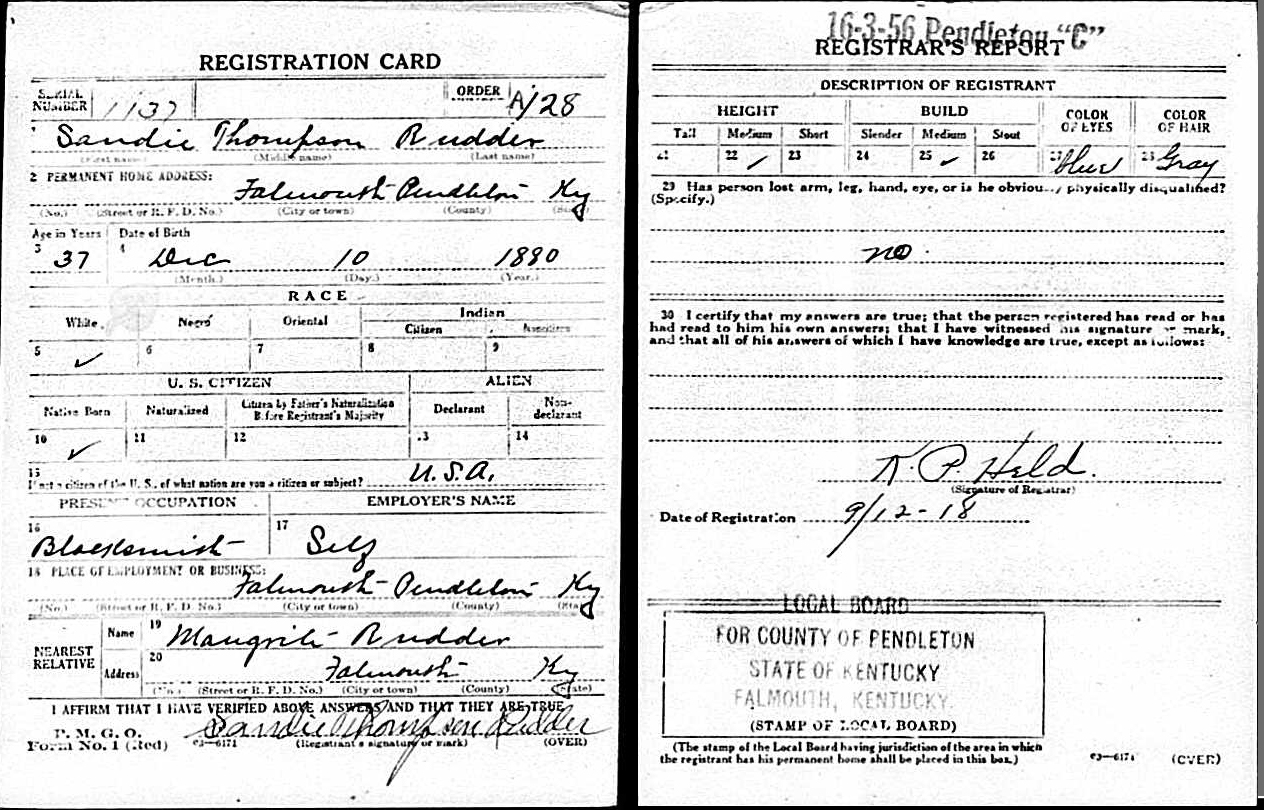 REGISTRATION CARD
SERIAL NUMBER 1137
ORDER NUMBER A/28
1 Sandie Thompson Rudder
(First name) (Middle name) (Last name)
2 PERMANENT HOME ADDRESS:
Falmouth Pendleton Ky
(No.) (Street or R. F. D. No.) (City or town) (County) (State)
Age in Years Date of Birth
3 37 4 Dec 10 1880
(Month.) (Day.) (Year.)
RACE
White Negro Oriental Indian
Citizen Noncitizen
5 ✓ 6 7 8 9
U. S. CITIZEN ALIEN
Native Born Naturalized Citizen by Father's Naturalization Before Registrant's Majority Declarant Non-declarant
10 ✓ 11 12 13 14
15
If not a citizen of the U. S., of what nation are you a citizen or subject? U.S.A.
PRESENT OCCUPATION EMPLOYER'S NAME
16 Blacksmith 17 Self
18 PLACE OF EMPLOYMENT OR BUSINESS:
Falmouth Pendleton Ky
(No.) (Street or R. F. D. No.) (City or town) (County) (State)
NEAREST RELATIVE
Name 19 Rudder
Address 20 Falmouth Ky
(No.) (Street or R. F. D. No.) (City or town) (County) (State)
I AFFIRM THAT I HAVE VERIFIED ABOVE ANSWERS AND THAT THEY ARE TRUE
Sandie Thompson Rudder
P. M. G. O.
Form No. 1 (Red) 03—6171 (Registrant's signature or mark) (OVER)
16-3-56 Pendleton "C"
REGISTRAR'S REPORT
DESCRIPTION OF REGISTRANT
HEIGHT BUILD COLOR OF EYES COLOR OF HAIR
Tall Medium Short Slender Medium Stout
21 22 ✓ 23 24 25 ✓ 26 27 blue 28 Gray
29 Has person lost arm, leg, hand, eye, or is he obviously physically disqualified?
(Specify.)
no.
30 I certify that my answers are true; that the person registered has read or has
had read to him his own answers; that I have witnessed his signature or mark,
and that all of his answers of which I have knowledge are true, except as follows:
K. P. Held.
(Signature of Registrar)
Date of Registration 9/12-18
LOCAL BOARD
FOR COUNTY OF PENDLETON
STATE OF KENTUCKY
FALMOUTH, KENTUCKY.
(STAMP OF LOCAL BOARD)
(The stamp of the Local Board having jurisdiction of the area in which
the registrant has his permanent home shall be placed in this box.)
03—6171 (OVER)